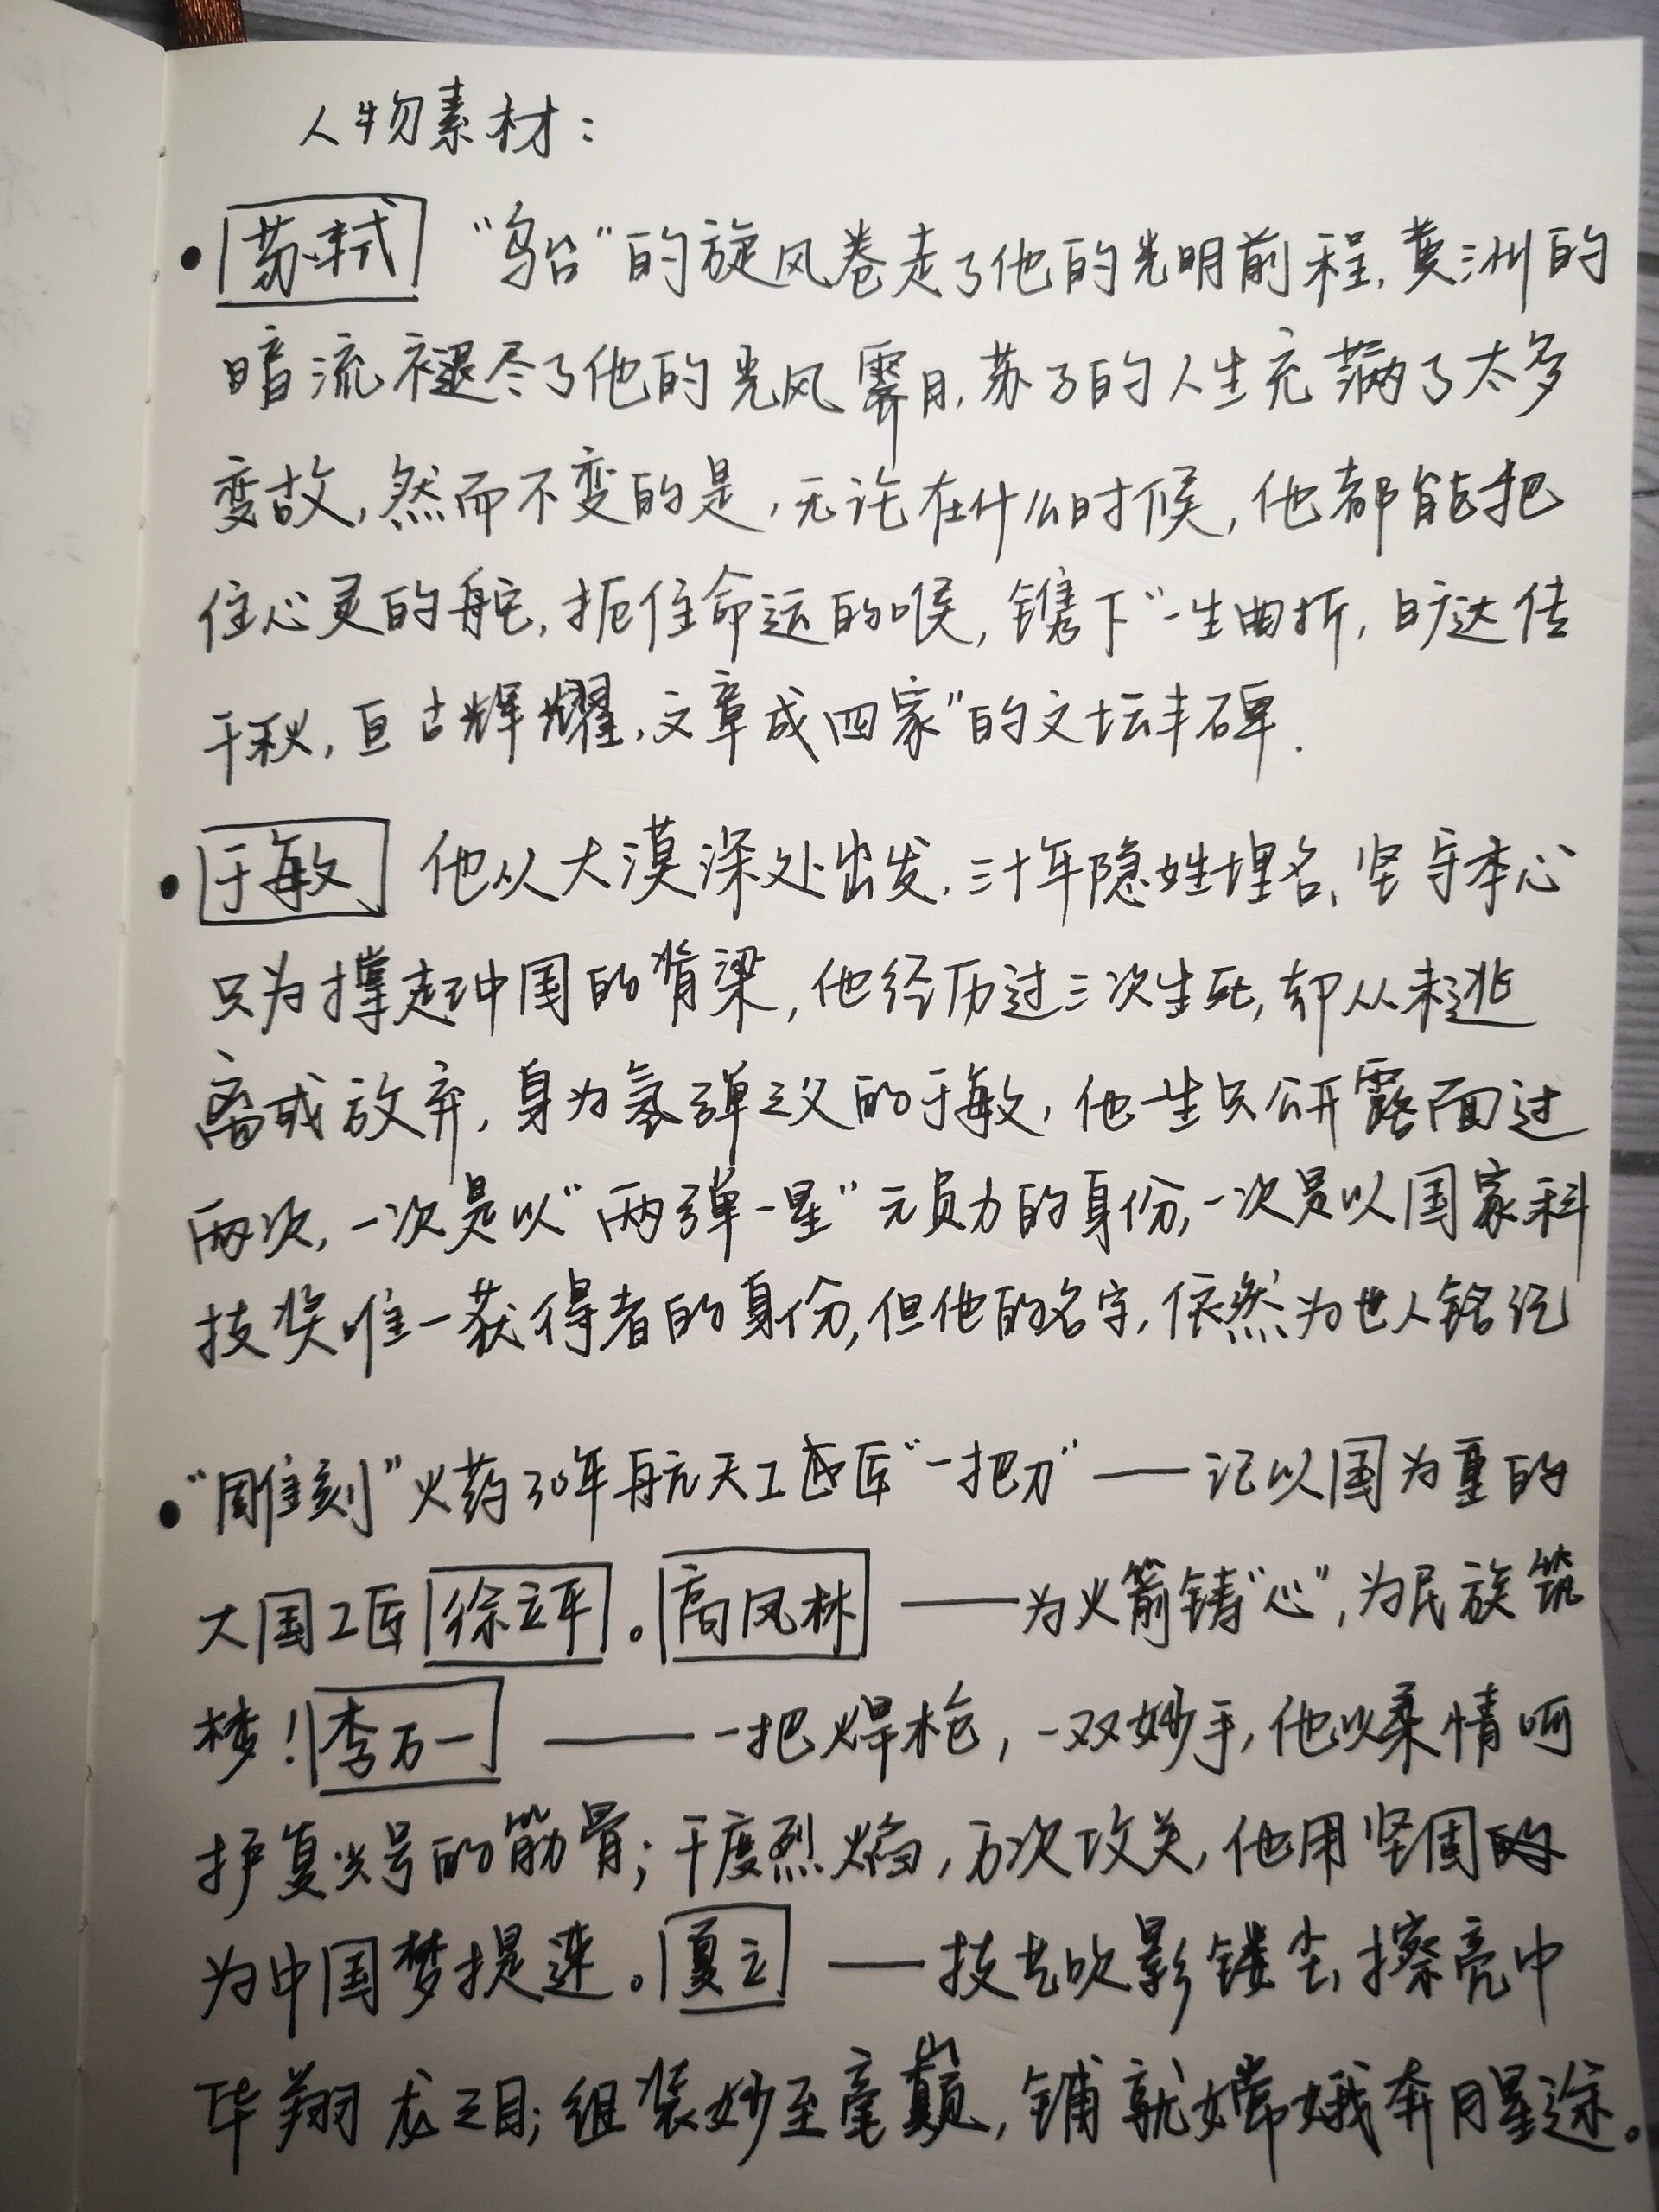 人物素材:
•苏轼 “乌台”的旋风卷走了他的光明前程,黄洲的
暗流褪尽了他的光风霁月,苏子的人生充满了太多
变故,然而不变的是,无论在什么时候,他都能把
住心灵的舵,扼住命运的喉,镌下“一生曲折,旷达传
千秋,亘古辉耀,文章成四家”的文坛丰碑.
•于敏 他从大漠深处出发,三十年隐姓埋名,坚守本心
只为撑起中国的脊梁,他经历过三次生死,却从未逃
离或放弃,身为氢弹之父的于敏,他一生只公开露面过
两次,一次是以“两弹一星”元勋的身份,一次是以国家科
技奖唯一获得者的身份,但他的名字,依然为世人铭记
•“雕刻”火药30年航天工匠“一把刀”——记以国为重的
大国工匠徐立平。高凤林——为火箭铸“心”,为民族筑
梦!李万一——一把焊枪,一双妙手,他以柔情呵
护复兴号的筋骨;千度烈焰,万次攻关,他用坚固的
为中国梦提速。夏立——技艺吹影镂尘,擦亮中
华翔龙之目;组装妙至毫巅,铺就嫦娥奔月星途。